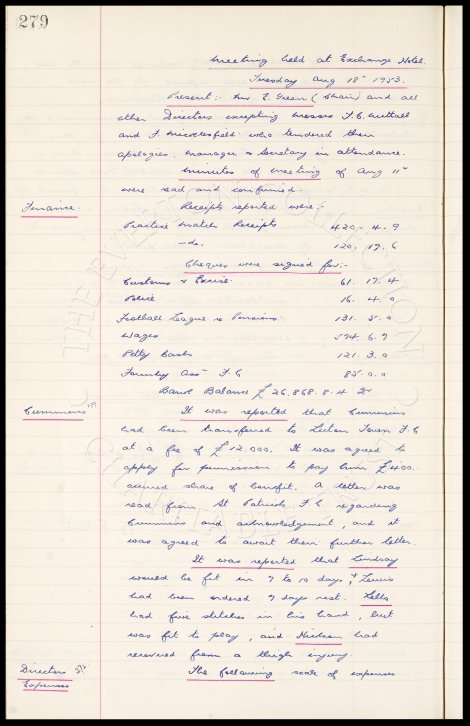 279
Meeting held at Exchange Hotel.
Tuesday Aug 18th 1953.
Present:- Mr. E. Green (Chair) and all
other Directors excepting Messrs F.C. Nuttall
and F. Micklesfield who tendered their
apologies. Manager & Secretary in attendance.
Minutes of meeting of Aug 11th
were read and confirmed.
Finance.
Receipts reported were:-
Practice Match Receipts 420. 4. 9
-do- 120. 19. 6
Cheques were signed for:-
Customs & Excise. 61. 17. 4
Police 16. 4. 0
Football League re Pensions. 131. 5. 0
Wages 594. 6. 9
Petty Cash 121. 3. 0
Formby Assn F.C 85. 0. 0
Bank Balance £26,868. 8. 4
Cummins
It was reported that Cummins
had been transferred to Luton Town F.C
at a fee of £12,000. It was agreed to
apply for permission to pay him £400.
accrued share of benefit. A letter was
read from St Patricks F.C regarding
Cummins and acknowledgement, and it
was agreed to await their further letter.
It was reported that Lindsay
would be fit in 7 to 10 days, & Lewis
had been ordered 7 days rest.
had five stitches in his hand, but
was fit to play, and Hickson had
recovered from a thigh injury.
Directors
Expenses
The following scale of expenses